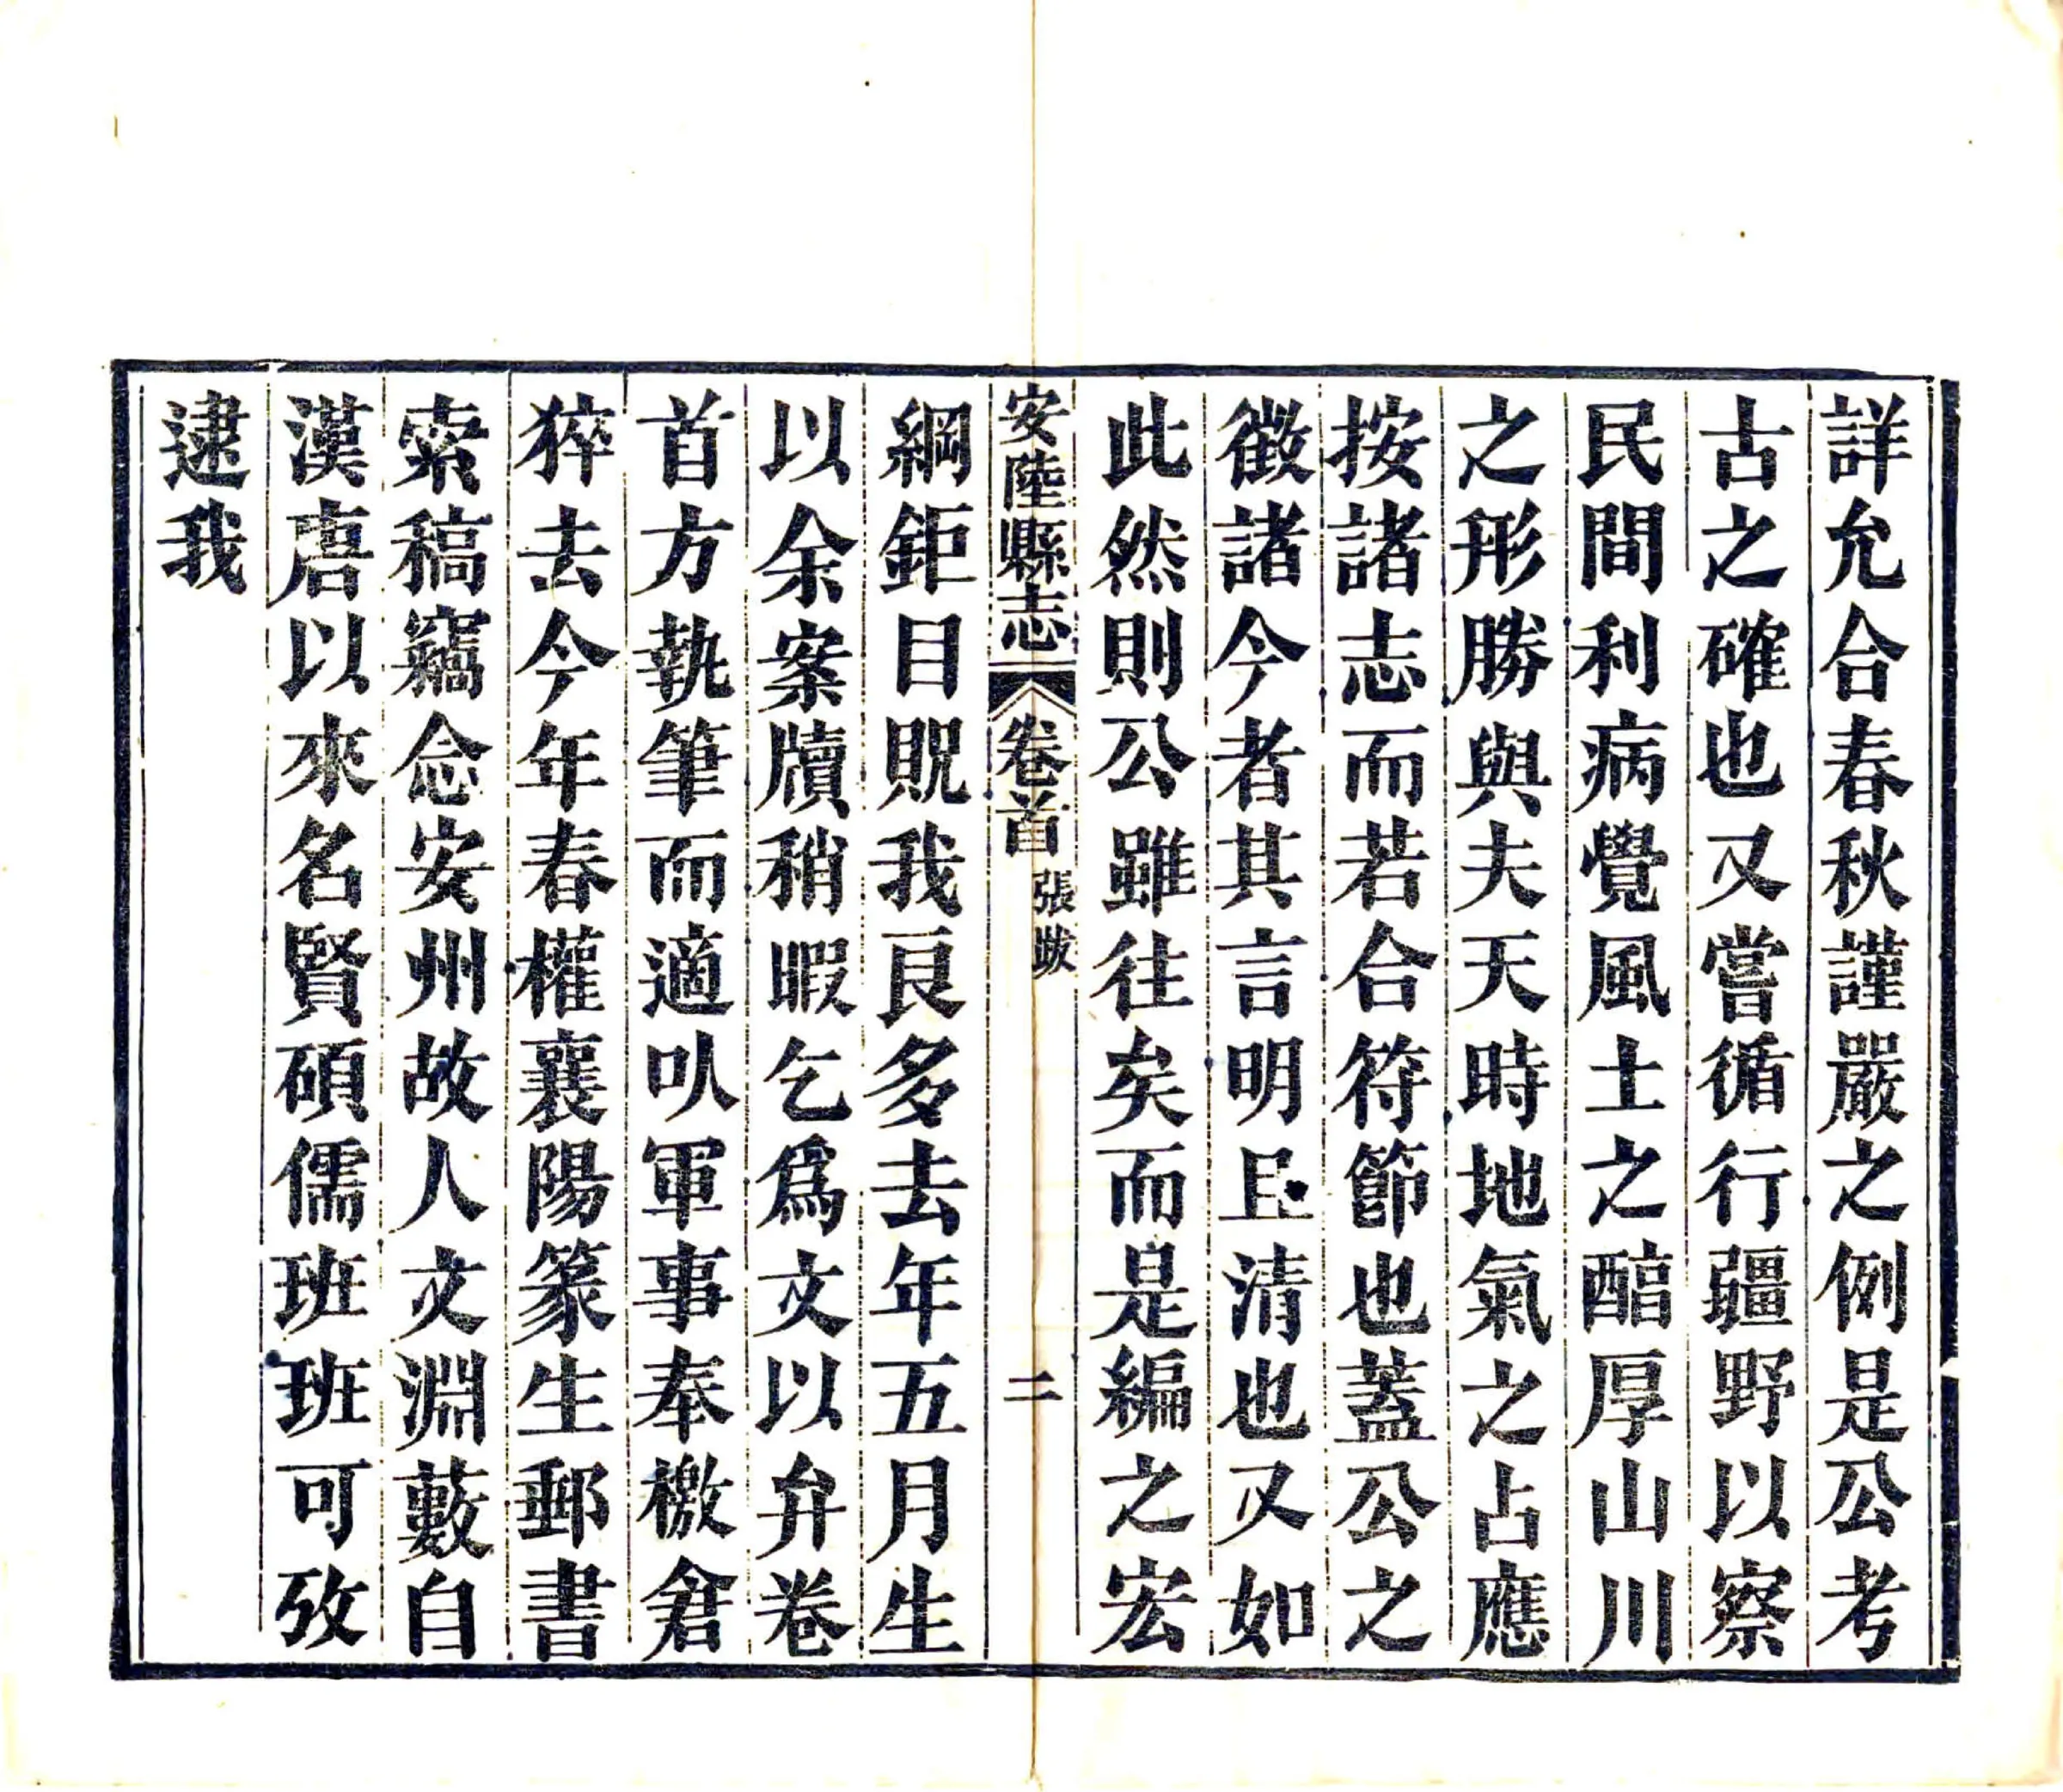 詳允合春秋謹嚴之例是公考
古之確也又嘗循行疆野以察
民間利病覺風土之醕厚山川
之形勝與夫天時地氣之占應
按諸志而若合符節也蓋公之
徵諸今者其言明且清也又如
此然則公雖往矣而是編之宏
安陸縣志
卷首
張跋
二
綱鉅目貺我良多去年五月生
以余案牘稍暇乞爲文以弁卷
首方執筆而適以軍事奉檄倉
猝去今年春權襄陽篆生郵書
索稿竊念安州故人文淵藪自
漢唐以來名賢碩儒班班可攷
逮我